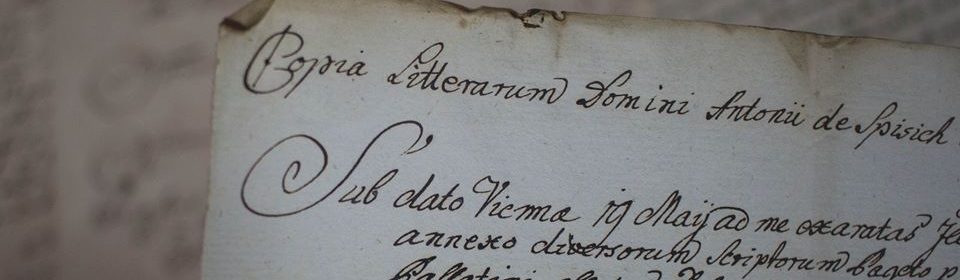 Copia Litterarum Domini Antonii de Spisich
Sub dato Viennæ 19 Maij ad me exaratas
annexo diversorum Scriptorum